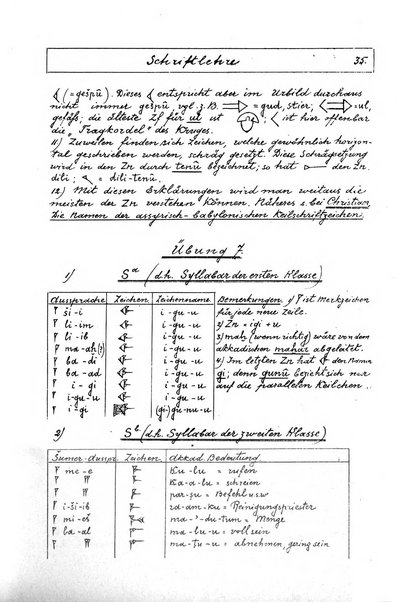 Schriftlehre 35.
(= gešpū). Dieses entspricht aber im Urbild durchaus
nicht immer gešpu, vgl. z.B. = gud, stier; = ul,
gefäß; die älteste Zf für ul ist ; ist hier offenbar
die „Tragkordel" des Kruges.
11) Zuweilen finden sich Zeichen, welche gewöhnlich horizon-
tal geschrieben werden, schräg gesetzt. Diese Schrägsetzung
wird in den Zn durch tenū bezeichnet; so hat den Zn.
dili; = dili-tenū.
12) Mit diesen Erklärungen wird man weitaus die
meisten der Zn verstehen können. Näheres s. bei Christian,
Die Namen der assyrisch-babylonischen Keilschriftzeichen.
Übung 7.
1) Sᵃ (d.h. Syllabar der ersten Klasse)
Aussprache Zeichen Zeichenname Bemerkungen. 1) 𒁹 ist Merkzeichen
𒁹 ši-i i-gu-u für jede neue Zeile.
𒁹 li-im i-gu-u 2) Zn = igi + u
𒁹 li-ib i-gu-u 3) mah (wenn richtig) wäre von dem
𒁹 ma-ah (?) i-gu-u akkadischen mahar abgeleitet.
𒁹 ba-di i-gu-u 4) Im letzten Zn hat den Namen
𒁹 ba-ad i-gu-u gi; denn gunū bezieht sich nur
𒁹 i-gi i-gu-u auf die parallelen Keilchen
𒁹 i-gu-u i-gu-u
𒁹 i-gi (gi)-gu-nu-u
2) Sᵇ (d.h. Syllabar der zweiten Klasse)
Šumer-Ausspr. Zeichen. Akkad. Bedeutung
𒁹 me-e Ku-lu = rufen
𒁹 Ka-a-lu = schreien
𒁹 par-ṣu = Befehl usw
𒁹 i-ši-ib ra-am-ku = Reinigungspriester
𒁹 mi-eš ma-'-du-tum = Menge
𒁹 ba-al ma-lu-u = voll sein
𒁹 ma-ṭu-u = abnehmen, gering sein